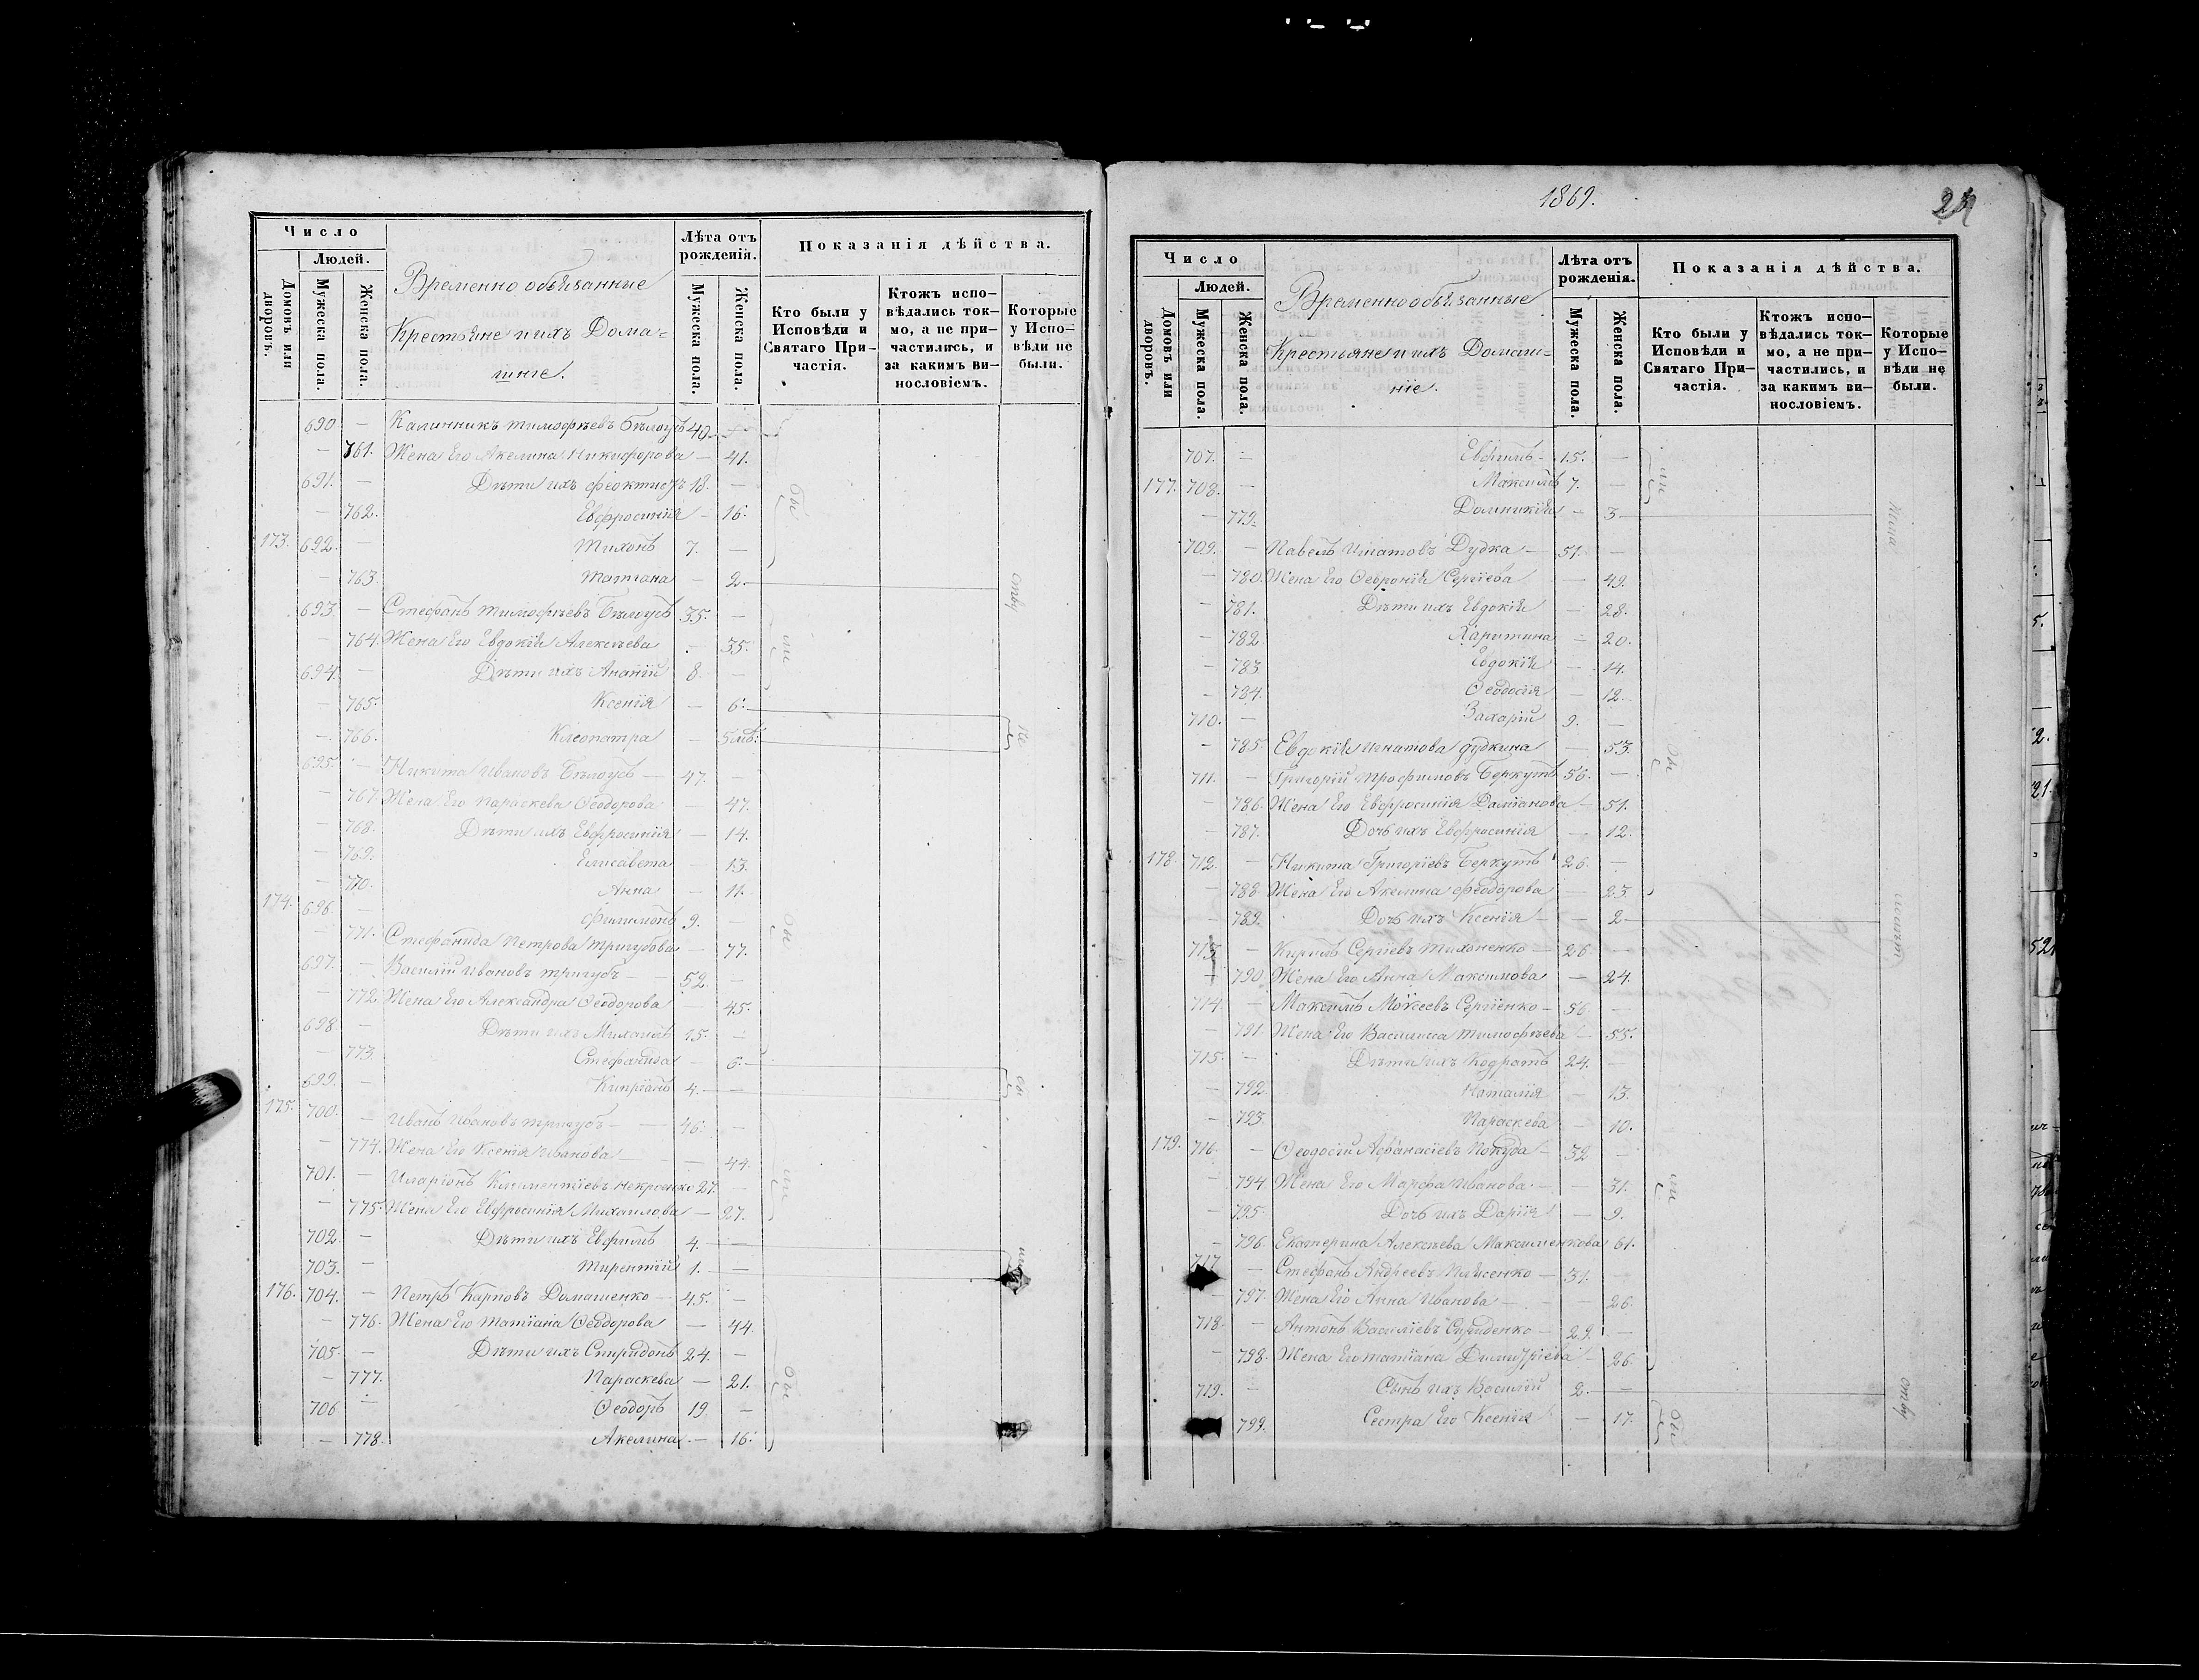 Число
Людей.
Домовъ или дворовъ.
Мужеска пола.
Женска пола.
Временно обязанные
Крестьяне и ихъ Дома=
шніе.
Лѣта отъ рожденія.
Мужеска пола.
Женска пола.
Показанія дѣйства.
Кто были у Исповѣди и Святаго Причастія.
Ктожъ исповѣдались токмо, а не причастились, и за какимъ винословіемъ.
Которые у Исповѣди не были.
690 — Калинникъ Тимофѣевъ Бѣлоусъ 40 —
— 761. Жена Его Акелина Никифорова — 41.
691. — Дѣти ихъ Феоктистъ 18. —
— 762. Евфросинія — 16.
173. 692. — Тихонъ 7. —
— 763. Татіана — 2.
693. — Стефанъ Тимофѣевъ Бѣлоусъ 35. —
— 764. Жена Его Евдокія Алексѣева — 35.
694. — Дѣти ихъ Ананій 8. —
— 765. Ксенія — 6.
— 766. Клеопатра — 5 мѣ.
695. — Никита Ивановъ Бѣлоусъ — 47. —
— 767. Жена Его Параскева Ѳеодорова — 47.
— 768. Дѣти ихъ Евфросинія — 14.
— 769. Елисавета — 13.
— 770. Анна — 11.
174. 696. — Филимонъ 9. —
— 771. Стефанида Петрова Тригубова — 77.
697. — Василій Ивановъ Тригубъ — 52. —
— 772. Жена Его Александра Ѳеодорова — 45.
698. — Дѣти ихъ Михаилъ 15. —
— 773. Стефанида — 6.
699. — Кипріанъ 4. —
175. 700. — Иванъ Ивановъ Тригубъ — 46. —
— 774. Жена Его Ксенія Иванова — 44.
701. — Иларіонъ Климентіевъ 27. —
— 775. Жена Его Евфросинія Михаилова — 27.
702. — Дѣти ихъ Евфимъ 4. —
703. — Тирентій 1. —
176. 704. — Петръ Карповъ Домашенко — 45. —
— 776. Жена Его Татіана Ѳеодорова — 44.
705. — Дѣти ихъ Спиридонъ 24. —
— 777. Параскева — 21.
706 — Ѳеодоръ 19 —
— 778. Акелина — 16.
1869.
Число
Людей.
Домовъ или дворовъ.
Мужеска пола.
Женска пола.
Временно обязанные
Крестьяне и ихъ Домаш=
ніе.
Лѣта отъ рожденія.
Мужеска пола.
Женска пола.
Показанія дѣйства.
Кто были у Исповѣди и Святаго Причастія.
Ктожъ исповѣдались токмо, а не причастились, и за какимъ винословіемъ.
Которые у Исповѣди не были.
707. — Евфимъ 15. —
177. 708. — Максимъ 7. —
— 779. Домникія — 3
709. — Павелъ Игнатовъ Дудка — 51. —
— 780. Жена Его Ѳевронія Сергіева — 49.
— 781. Дѣти ихъ Евдокія — 28.
— 782. Харитина — 20.
— 783. Евдокія — 14.
— 784. Ѳеодосія — 12.
710. — Захарій 9. —
— 785. Евдокія Игнатова Дудкина — 53.
711. — Григорій Трофимовъ Беркутъ 56. —
— 786. Жена Его Евфросинія Даміанова — 51.
— 787. Дочь ихъ Евфросинія — 12.
178. 712. — Никита Григоріевъ Беркутъ 26. —
— 788. Жена Его Акелина Феодорова — 23.
— 789. Дочь ихъ Ксенія — 2
713 — Кирилъ Сергіевъ Тихоненко — 26. —
— 790. Жена Его Анна Максимова — 24.
714. — Максимъ Моѵсеевъ Сергіенко — 56 —
— 791. Жена Его Василисса Тимофѣева — 55.
715. — Дѣти ихъ Кодратъ 24. —
— 792. Наталія — 13.
— 793. Параскева — 10.
179. 716. — Ѳеодосій Афанасіевъ — 32 —
— 794 Жена Его Марфа Иванова — 31.
— 795. Дочь ихъ Дарія — 9.
— 796. Екатерина Алексѣева Максименкова 61.
717 — Стефанъ Андреевъ — 31. —
— 797. Жена Его Анна Иванова — 26.
718. — Антонъ Василіевъ — 29. —
— 798. Жена Его Татіана Димитріева — 26.
719. — Сынъ ихъ Василій 2. —
799. Сестра Его Ксенія — 17.